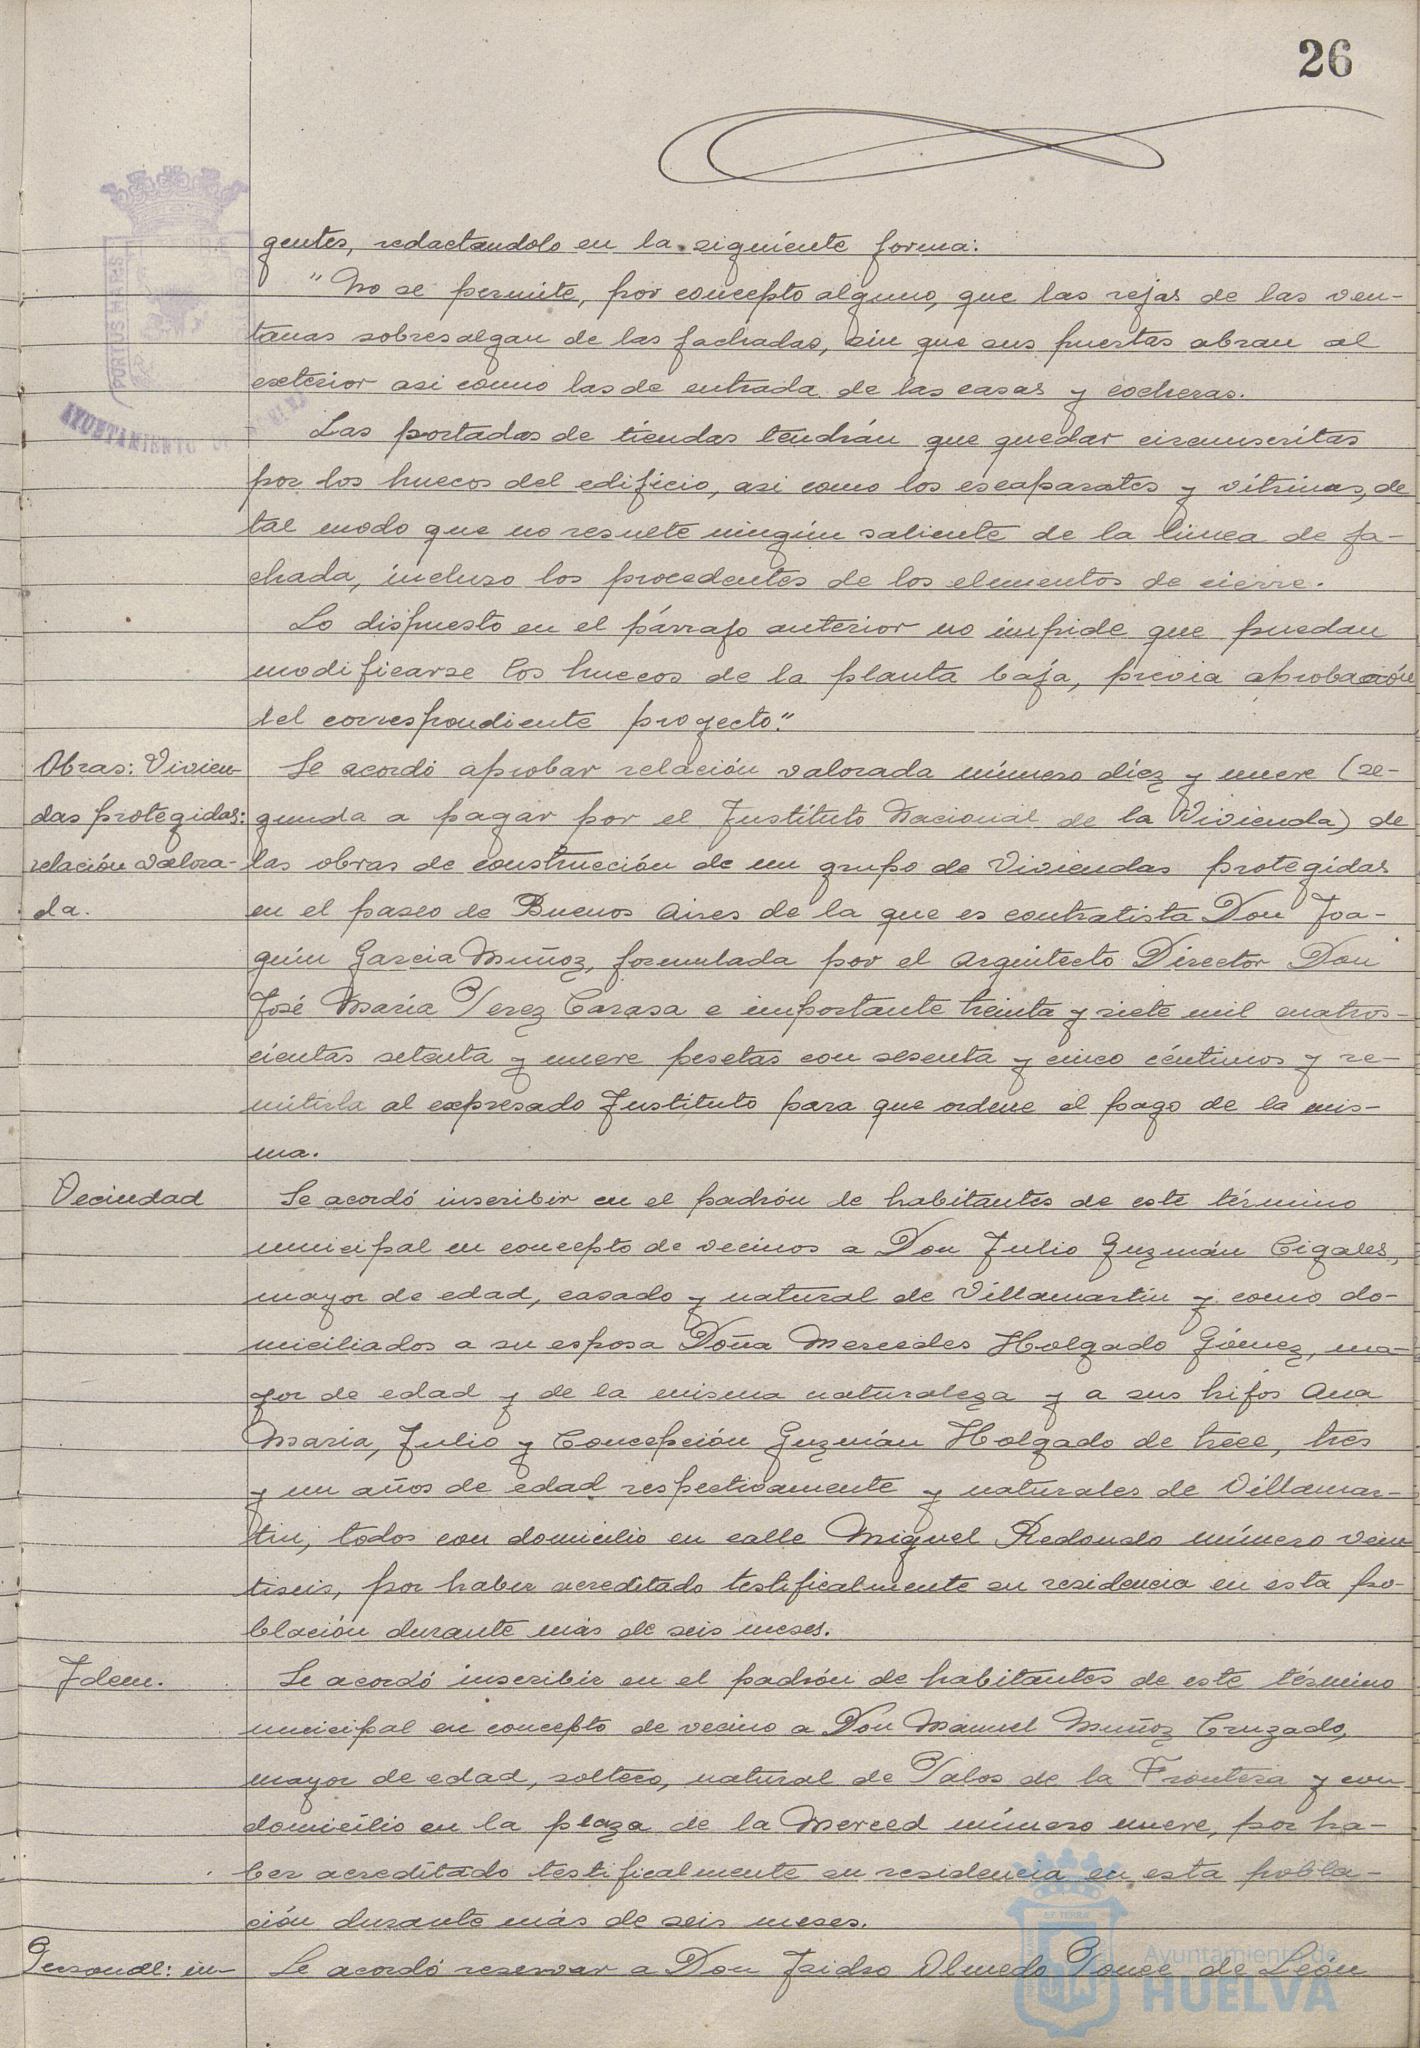 26
gentes, redactandolo en la siguiente forma:
"No se permite, por concepto alguno, que las rejas de las ven-
tanas sobresalgan de las fachadas, sin que sus puertas abran al
exterior asi como las de entrada de las casas y cocheras.
Las portadas de tiendas tendrán que quedar circunscritas
por los huecos del edificio, asi como los escaparates y vitrinas, de
tal modo que no resulte ningún saliente de la linea de fa-
chada, incluso los procedentes de los elementos de cierre.
Lo dispuesto en el párrafo anterior no impide que puedan
modificarse los huecos de la planta baja, previa aprobación
del correspondiente proyecto."
Obras: Vivien-
das protegidas:
relación valora-
da.
Se acordó aprobar relación valorada número diez y nueve (se-
gunda a pagar por el Instituto Nacional de la Vivienda) de
las obras de construcción de un grupo de Viviendas protegidas
en el paseo de Buenos Aires de la que es contratista Don Joa-
quin Garcia Muñoz, formulada por el Arquitecto Director Don
José Maria Perez Carasa e importante treinta y siete mil cuatros-
cientas setenta y nueve pesetas con sesenta y cinco céntimos y re-
mitirla al expresado Instituto para que ordene el pago de la mis-
ma.
Vecindad
Se acordó inscribir en el padrón de habitantes de este término
municipal en concepto de vecinos a Don Julio Guzmán Cigales,
mayor de edad, casado y natural de Villamartin y como do-
miciliados a su esposa Doña Mercedes Holgado Gómez, ma-
yor de edad y de la misma naturaleza y a sus hijos Ana
Maria, Julio y Concepción Guzmán Holgado de trece, tres
y un años de edad respectivamente y naturales de Villamar-
tin, todos con domicilio en calle Miguel Redondo número vein
tiseis, por haber acreditado testificalmente su residencia en esta po-
blación durante más de seis meses.
Idem.
Se acordó inscribir en el padrón de habitantes de este término
municipal en concepto de vecino a Don Manuel Muñoz Cruzado,
mayor de edad, soltero, natural de Palos de la Frontera y con
domicilio en la plaza de la Merced número nueve, por ha-
ber acreditado testificalmente su residencia en esta pobla-
ción durante más de seis meses.
Personal: in-
Se acordó reservar a Don Isidro Olmedo Ponce de León
PORTUS MARIS
AYUNTAMIENTO
Ayuntamiento de
HUELVA